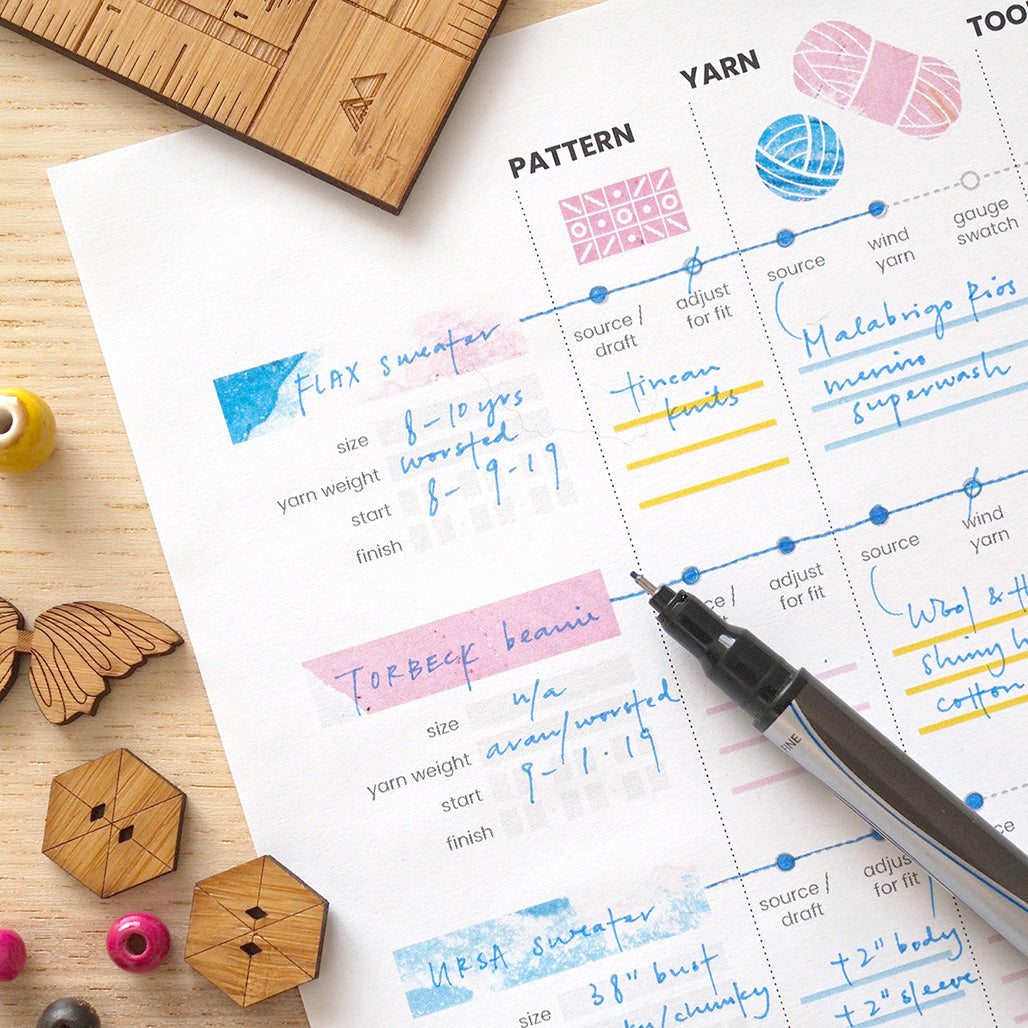 PATTERN
YARN
source /
draft
adjust
for fit
source
wind
yarn
gauge
swatch
FLAX sweater
size 8-10 yrs
yarn weight worsted
start 8-9-19
finish
tincan
knits
Malabrigo Rios
merino
superwash
TORBECK beanie
size n/a
yarn weight aran/worsted
start 9-1.19
finish
adjust
for fit
source
wind
yarn
Wool &
shiny
cotton
FINE
URSA sweater
size 38" bust
/chunky
source /
draft
for fit
+2" body
+2" sleeve